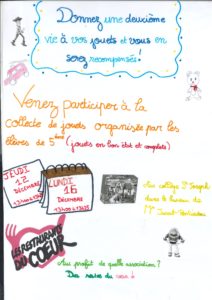 Donnez une deuxième
vie à vos jouets et vous en
serez recompensés!
Venez participer à la
collecte de jouets organisée par les
élèves de 5ème (jouets en bon état et complets)
JEUDI
12
DÉCEMBRE
LUNDI
16
DÉCEMBRE
Au collège St Joseph
dans le bureau de
Mme
LES RESTAURANTS
DU COEUR
Au profit de quelle association?
Des restos du coeur!